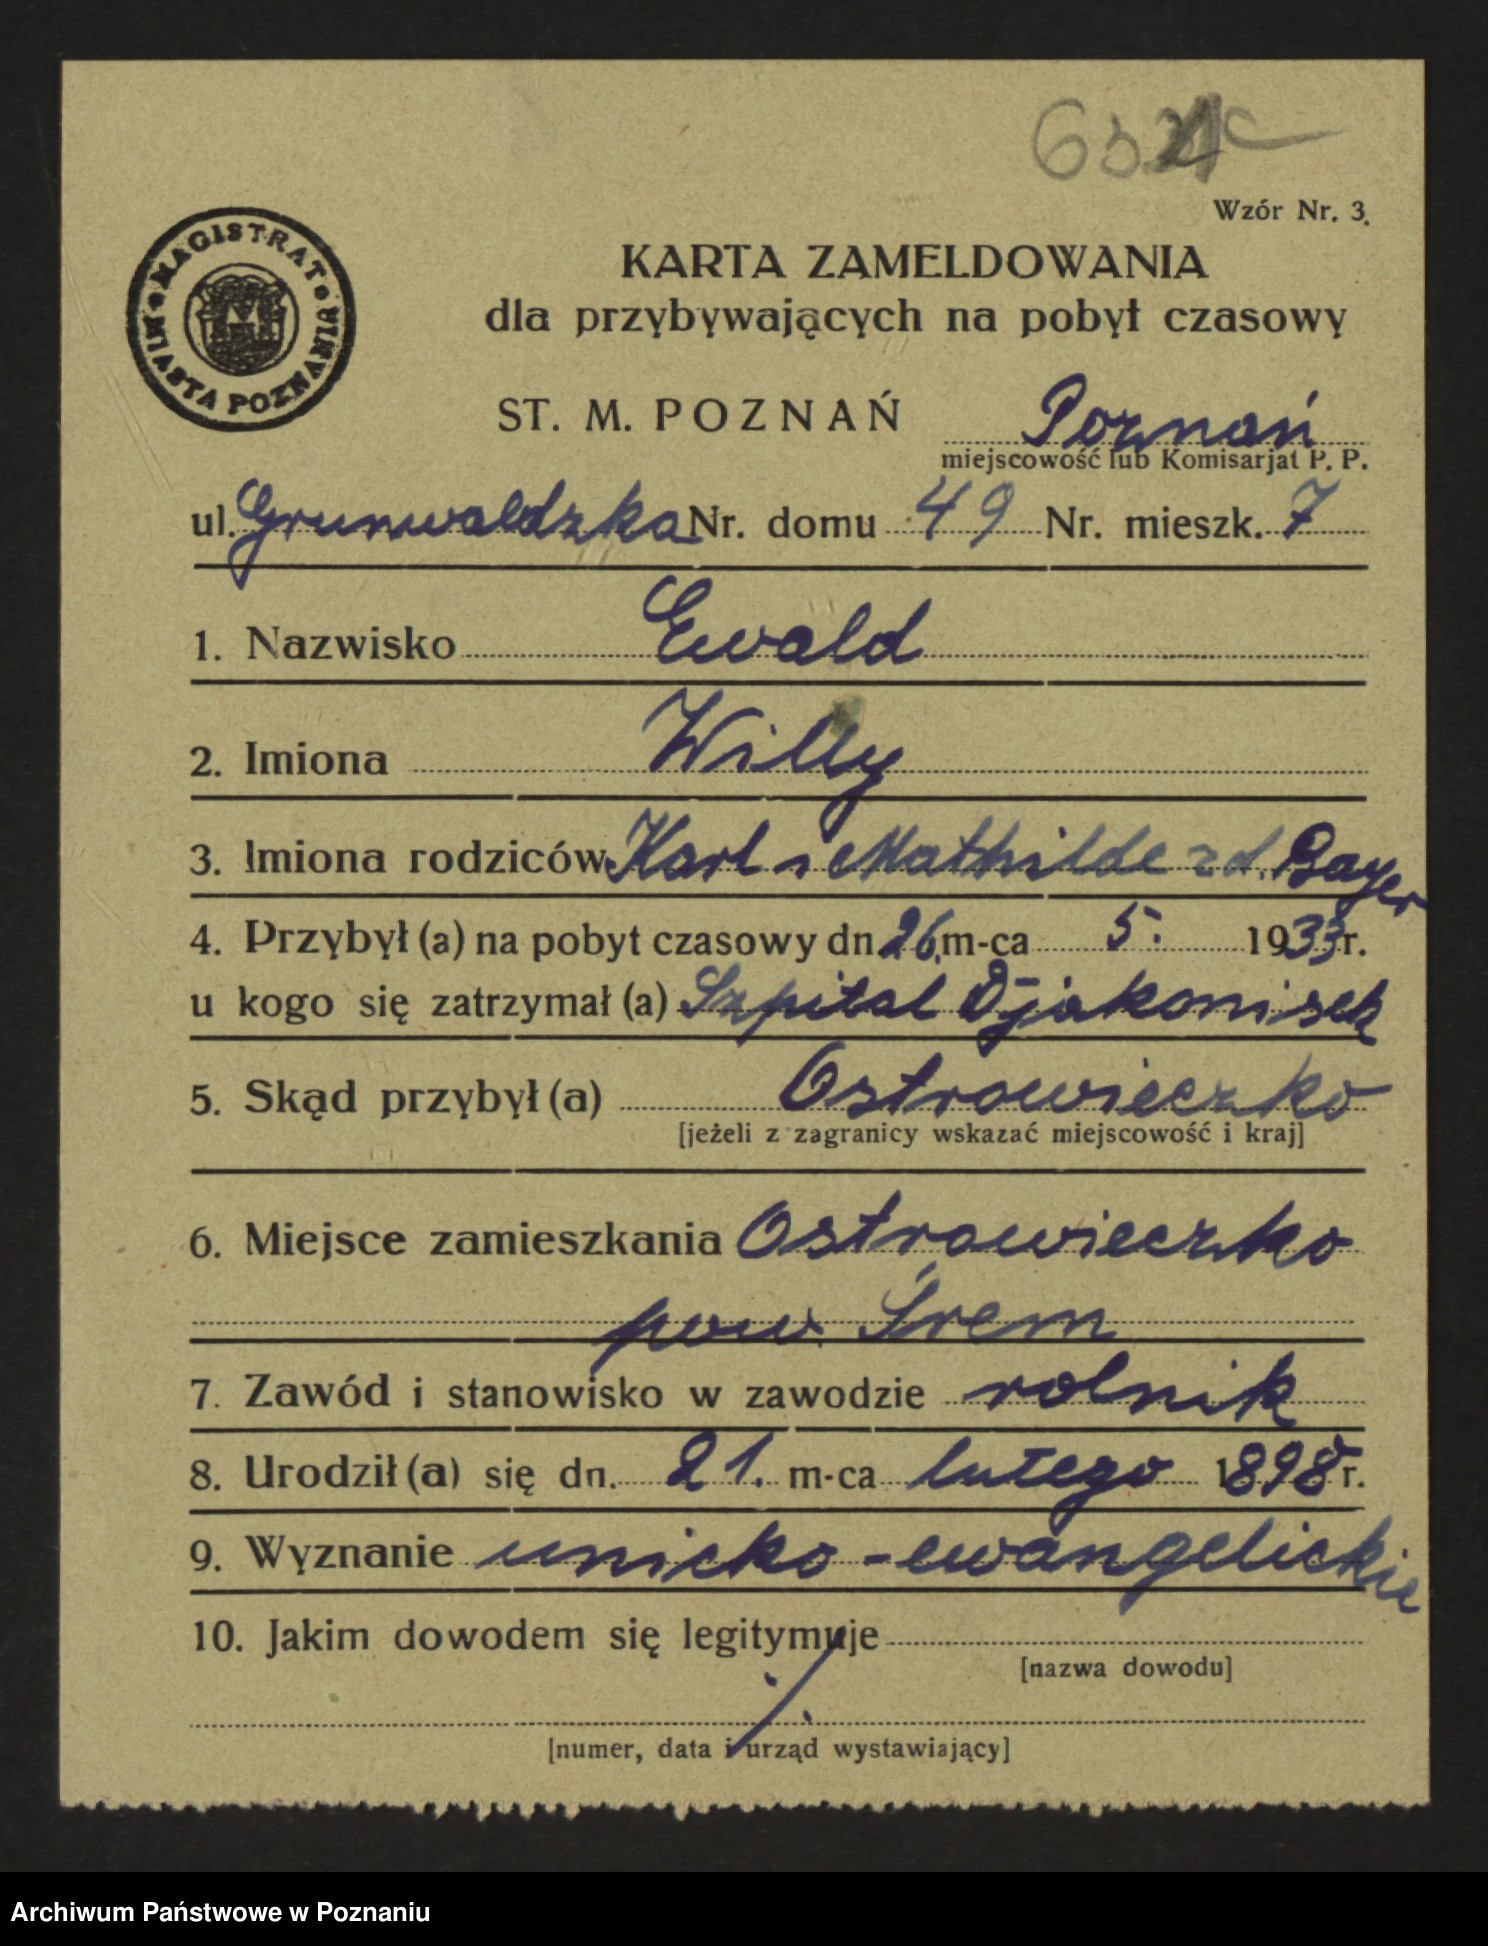 Wzór Nr. 3.
MAGISTRAT GŁÓWNY MIASTA POZNANIA
KARTA ZAMELDOWANIA
dla przybywających na pobyt czasowy
ST. M. POZNAŃ Poznań
miejscowość lub Komisarjat P. P.
ul. Grunwaldzka Nr. domu 49 Nr. mieszk. 7
1. Nazwisko Ewald
2. Imiona Willy
3. Imiona rodziców Karl i Mathilde zd. Bayer
4. Przybył (a) na pobyt czasowy dn. 26. m-ca 5. 1933 r.
u kogo się zatrzymał (a) Szpital Djakonisek
5. Skąd przybył (a) Ostrowieczko
[jeżeli z zagranicy wskazać miejscowość i kraj]
6. Miejsce zamieszkania Ostrowieczko
pow. Śrem
7. Zawód i stanowisko w zawodzie rolnik
8. Urodził (a) się dn. 21. m-ca lutego 1898 r.
9. Wyznanie unicko-ewangelickie
10. Jakim dowodem się legitymuje
[nazwa dowodu]
[numer, data i urząd wystawiający]
Archiwum Państwowe w Poznaniu